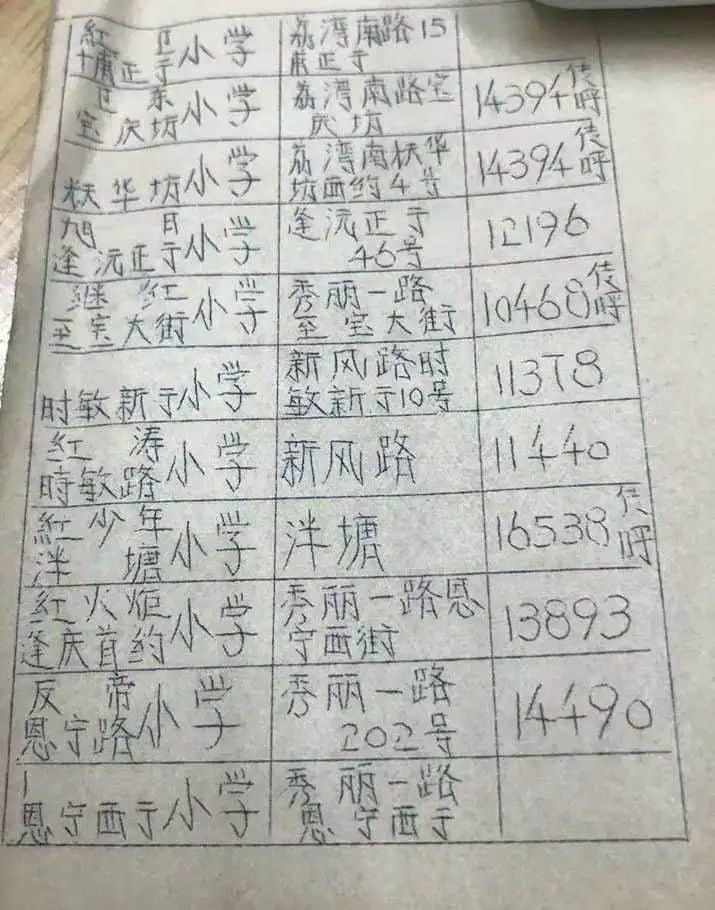 紅 卫
十甫正于 小学
荔湾南路15
甫正于
卫 东
宝庆坊 小学
荔湾南路宝
庆坊
14394 传呼
秩华坊 小学
荔湾南秩华
坊西约4号
14394 传呼
旭 日
逢沅正于 小学
逢沅正于
46号
12196
继 红
至宝大街 小学
秀丽一路
至宝大街
10468 传呼
时敏新于 小学
新风路时
敏新于10号
11378
紅 涛
時敏路 小学
新风路
11440
紅少年
泮塘 小学
泮塘
16538 传呼
红火炬
逢庆首约 小学
秀丽一路恩
宁西街
13893
反 帝
恩宁路 小学
秀丽一路
202号
14490
恩宁西于 小学
秀丽一路
恩宁西于